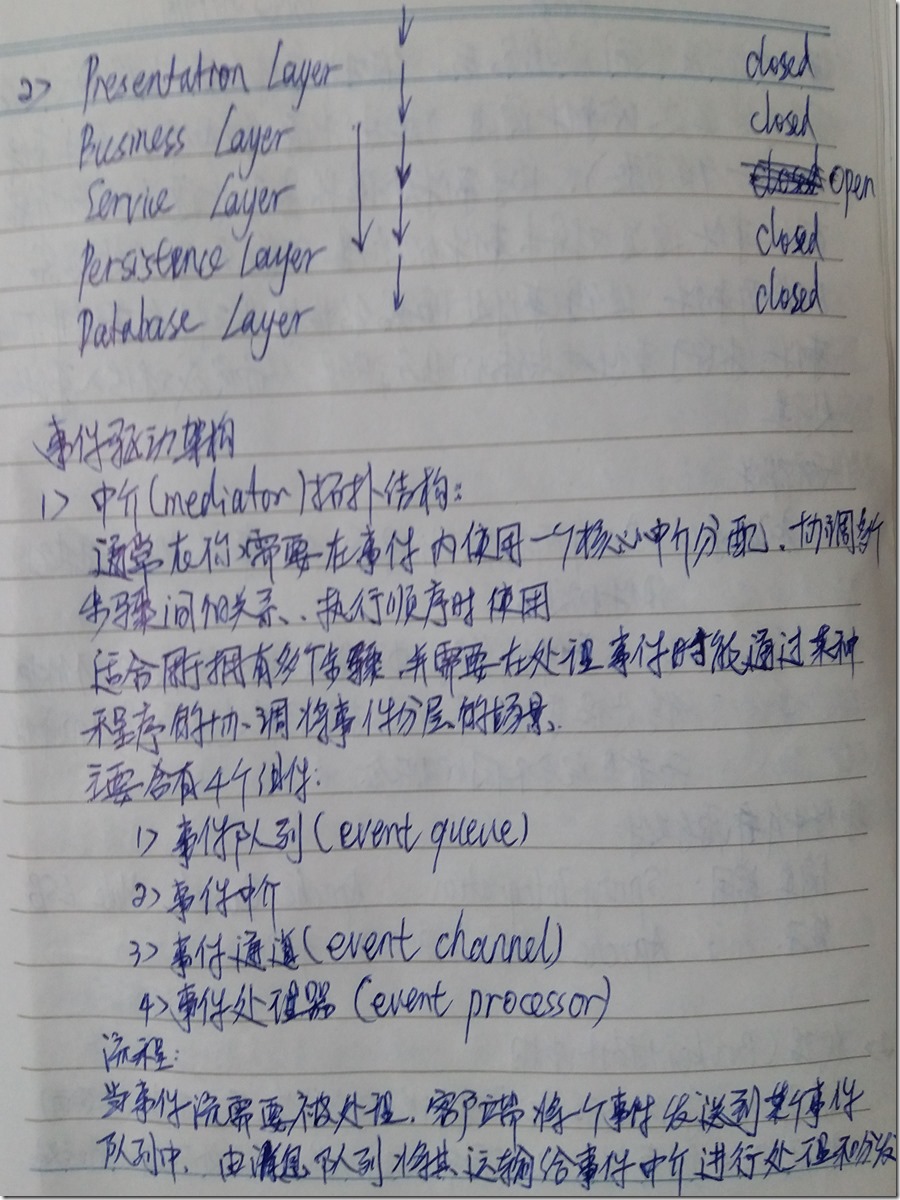 2> Presentation Layer closed
Business Layer closed
Service Layer open
Persistence Layer closed
Database Layer closed
事件驱动架构
1> 中介(mediator)拓扑结构:
通常在你需要在事件内使用一个核心中介分配、协调多个
步骤间的关系、执行顺序时使用
适合用于拥有多个步骤,并需要在处理事件时能通过某种
程序的协调将事件分层的场景、
主要含有4个组件:
1> 事件队列(event queue)
2> 事件中介
3> 事件通道(event channel)
4> 事件处理器(event processor)
流程:
当事件流需要被处理,客户端将一个事件发送到某个事件
队列中,由消息队列将其运输给事件中介进行处理和分发